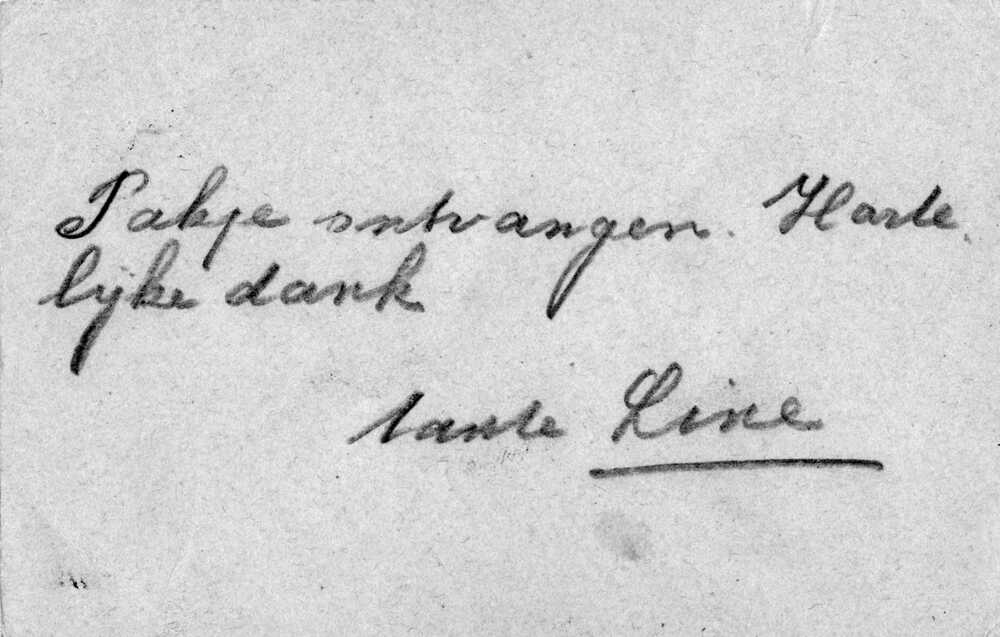 Pakje ontvangen. Harte
lijke dank
tante Line